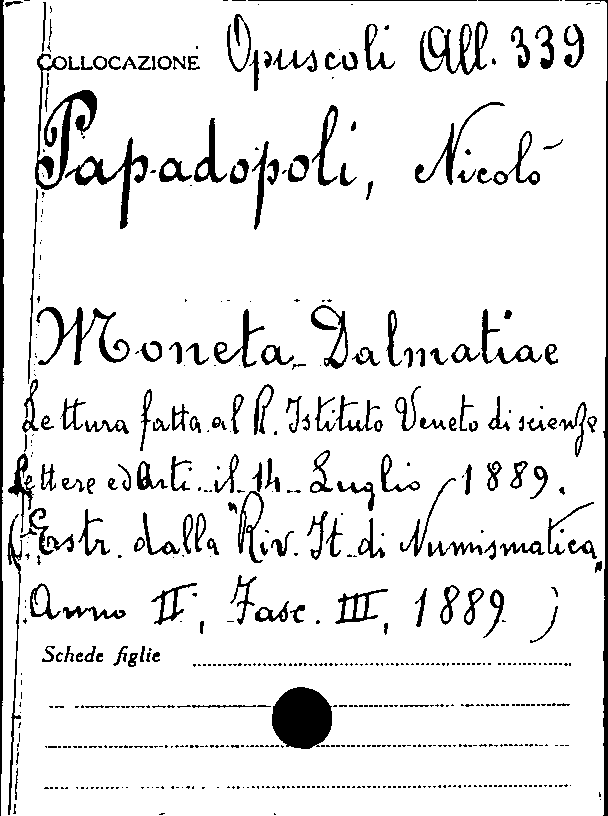 COLLOCAZIONE Opuscoli All. 339
Papadopoli, Nicolò
Moneta Dalmatiae
Lettura fatta al R. Istituto Veneto di scienze,
Lettere ed Arti il 14 Luglio 1889.
(Estr. dalla "Riv. It. di Numismatica"
Anno II, Fasc. III, 1889)
Schede figlie